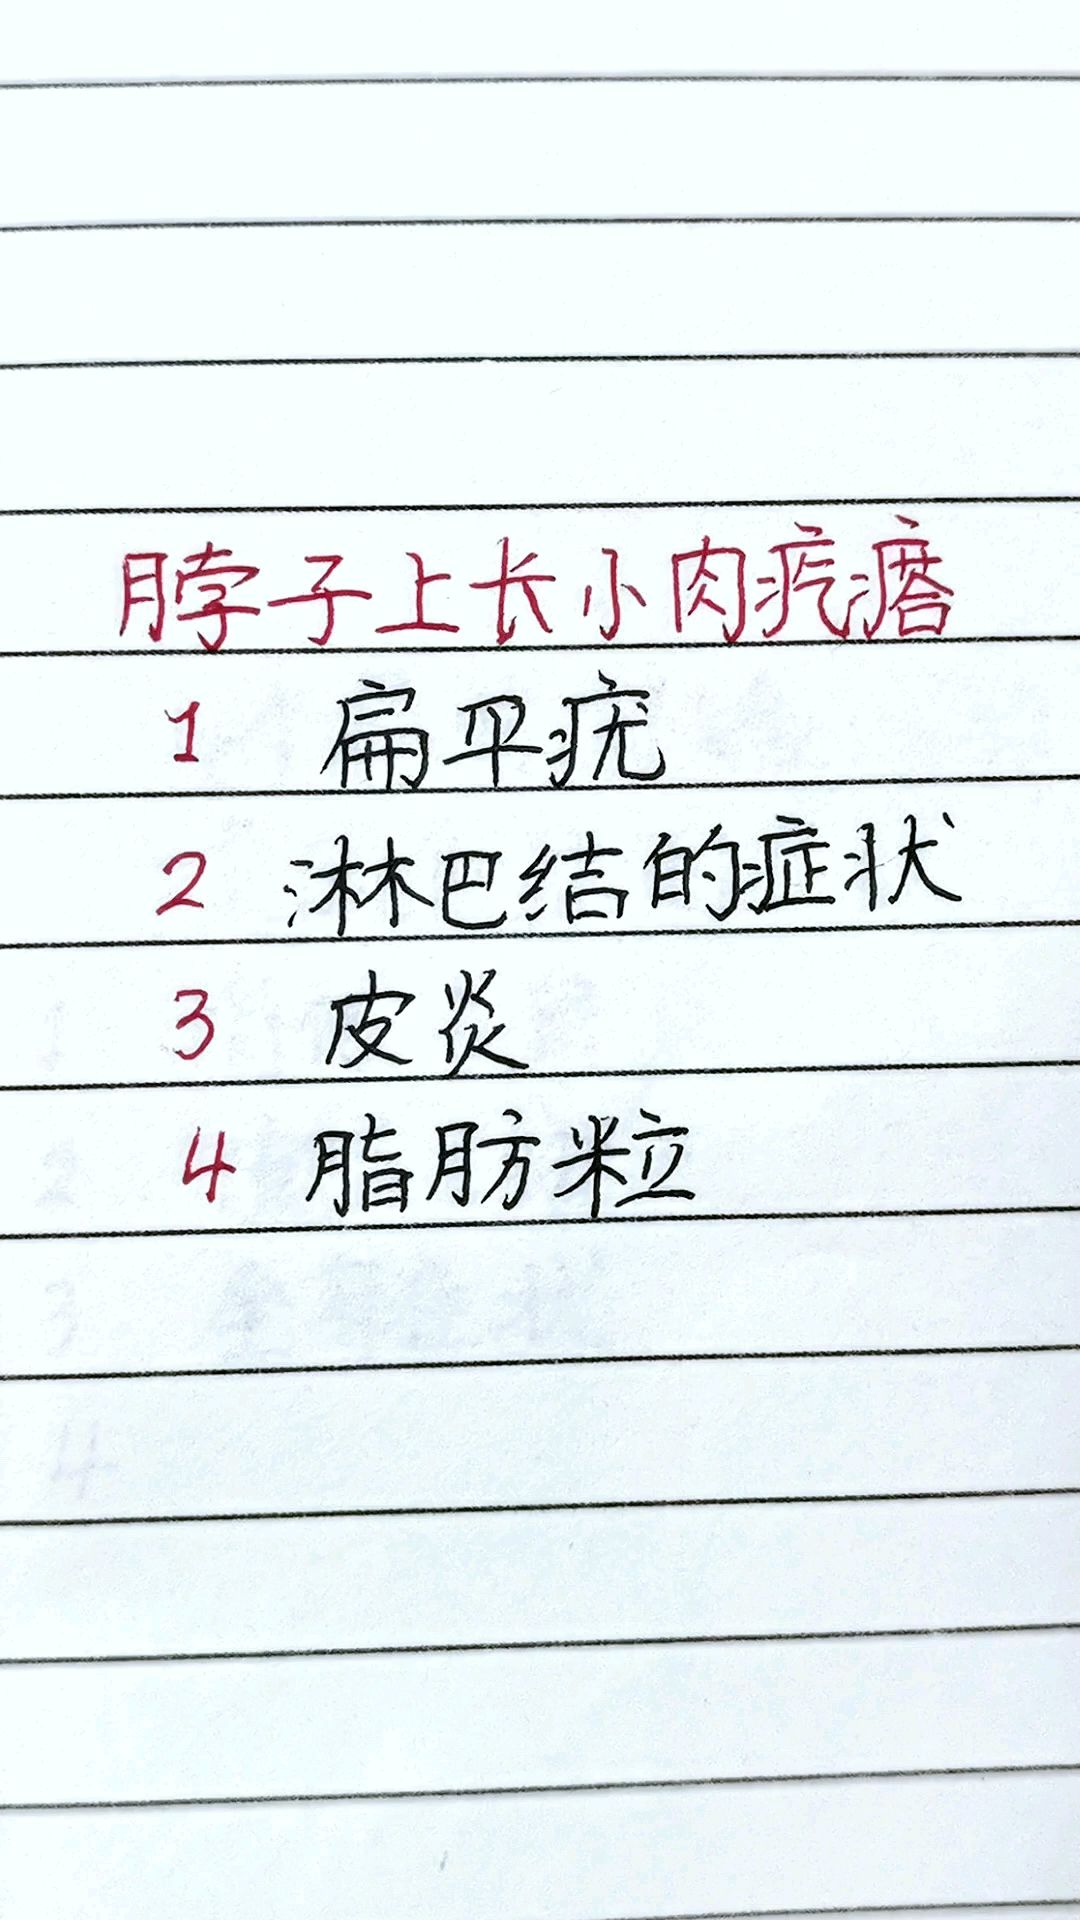 脖子上长小肉疙瘩
1 扁平疣
2 淋巴结的症状
3 皮炎
4 脂肪粒